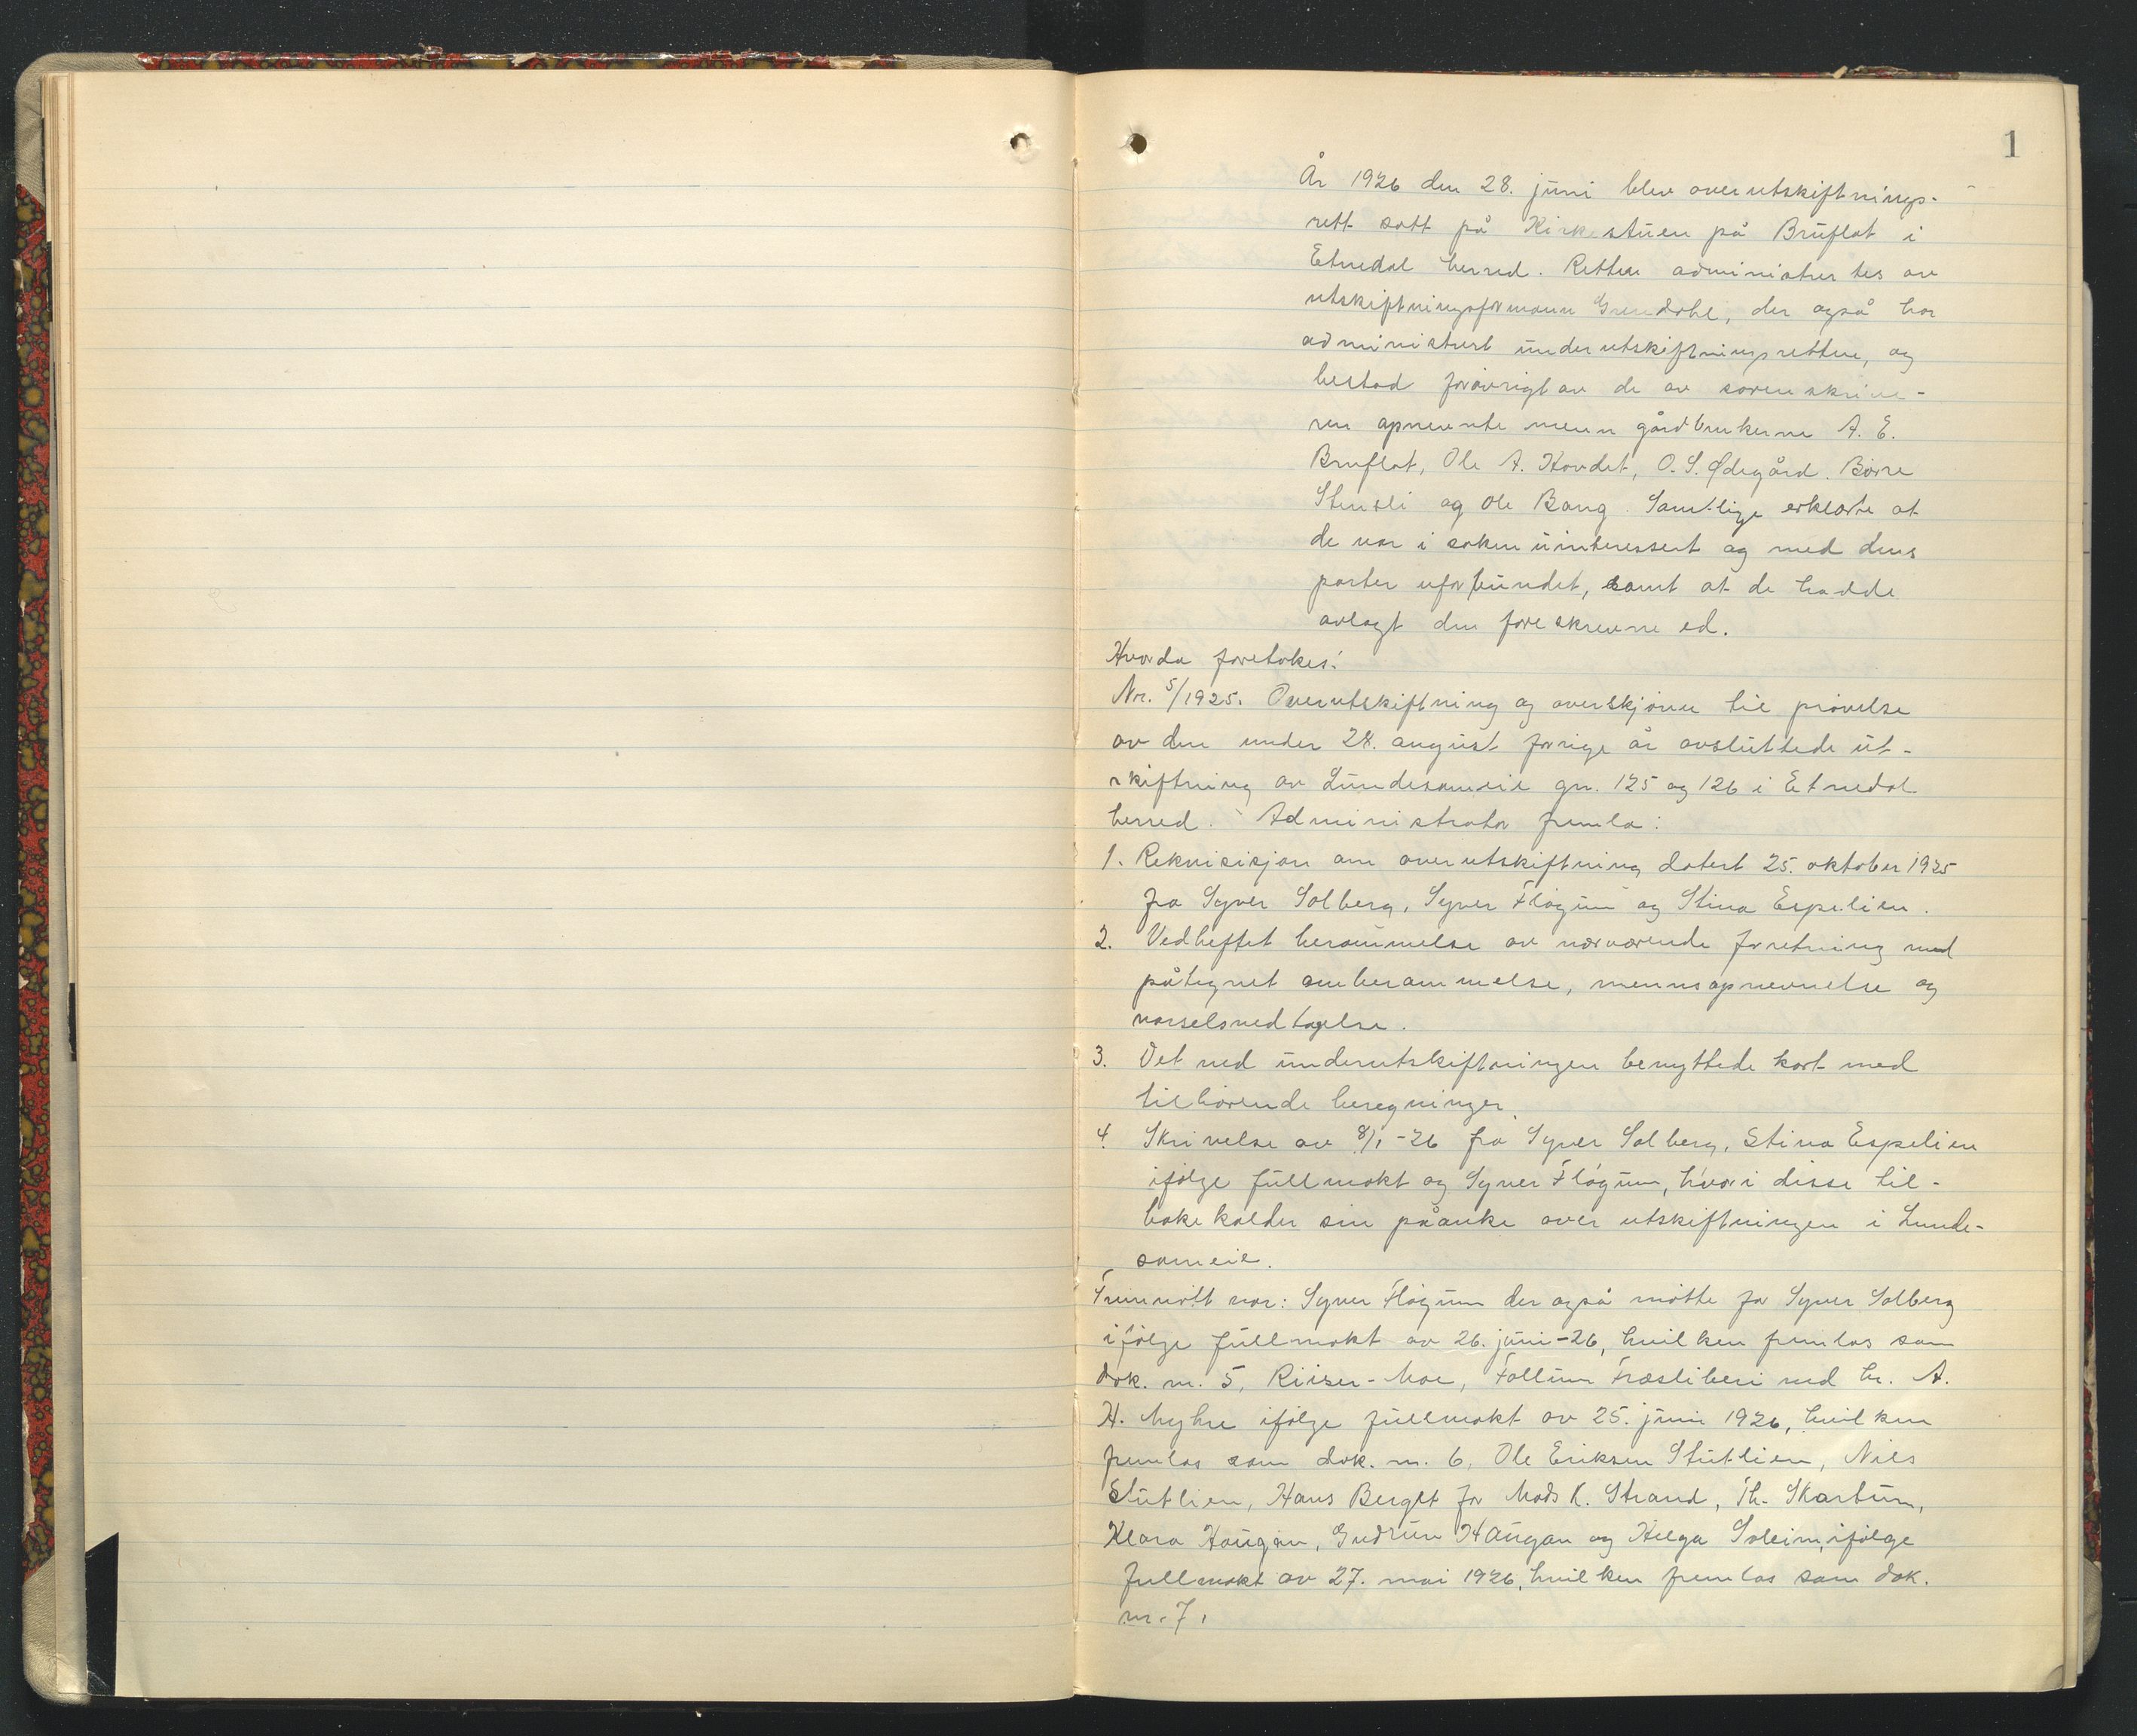 1
År 1926 den 28. juni blev overutskiftnings-
rett satt på Kirkestuen på Bruflat i
Etnedal herred. Retten administrertes av
utskiftningsformann Grendahl, der også har
administrert underutskiftningsretten, og
bestod forøvrigt av de av sorenskrive-
ren opnevnte menn gårdbrukerne A. E.
Bruflat, Ole A. Hovdet, O. S. Ødegård. Børre
Stensli og Ole Bang. Samtlige erklærte at
de var i saken uinteressert og med dens
parter uforbundet, samt at de hadde
avlagt den foreskrevne ed.
Hvorda foretokes:
Nr. 5/1925. Overutskiftning og overskjønn til prøvelse
av den under 28. august forrige år avsluttede ut-
skiftning av Lundesameie gnr. 125 og 126 i Etnedal
herred. Administrator fremla:
1. Rekvisisjon om overutskiftning datert 25. oktober 1925
fra Syver Solberg, Syver Fløgum og Stina Espelien.
2. Vedheftet berammelse av nærværende forretning med
påtegnet omberammelse, mennsopnevnelse og
varselsvedtagelse.
3. Det ved underutskiftningen benyttede kart med
tilhørende beregninger.
4. Skrivelse av 8/1-26 fra Syver Solberg, Stina Espelien
ifølge fullmakt og Syver Fløgum, hvori disse til-
bakekalder sin påanke over utskiftningen i Lunde-
sameie.
Fremmøtt var: Syver Fløgum der også møtte for Syver Solberg
ifølge fullmakt av 26. juni-26, hvilken fremlas som
dok. nr. 5, Riiser-Moe, Follum Træsliberi ved hr. A.
H. Myhre ifølge fullmakt av 25. juni 1926, hvilken
fremlas som dok. nr. 6, Ole Eriksen Stutlien, Nils
Stutlien, Hans Berget for Mads K. Strand, Th. Skartum,
Klara Haugan, Gudrun Haugan og Helga Soleim, ifølge
fullmakt av 27. mai 1926, hvilken fremlas som dok.
nr. 7,